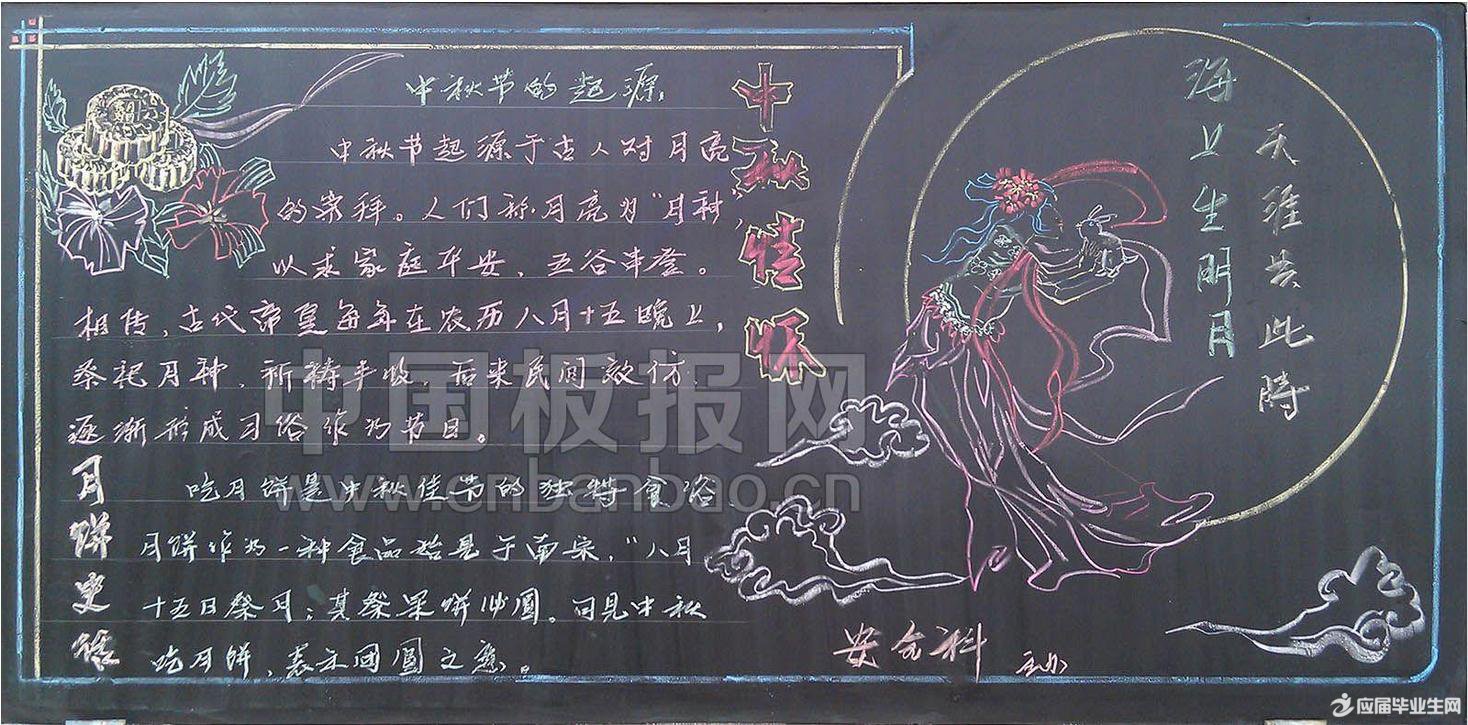 中秋节的起源
中秋节起源于古人对月亮
的崇拜。人们称月亮为“月神”，
以求家庭平安，五谷丰登。
相传，古代帝皇每年在农历八月十五晚上，
祭祀月神，祈祷丰收，后来民间效仿，
逐渐形成习俗作为节日。
月饼史话
吃月饼是中秋佳节的独特食俗，
月饼作为一种食品始见于南宋，“八月
十五日祭月；其祭果饼必圆。可见中秋
吃月饼，表示团圆之意。
中秋佳
海上生明月
天涯共此時
安全科 主办
中国板报网
www.cnbanbao.cn
应届毕业生网